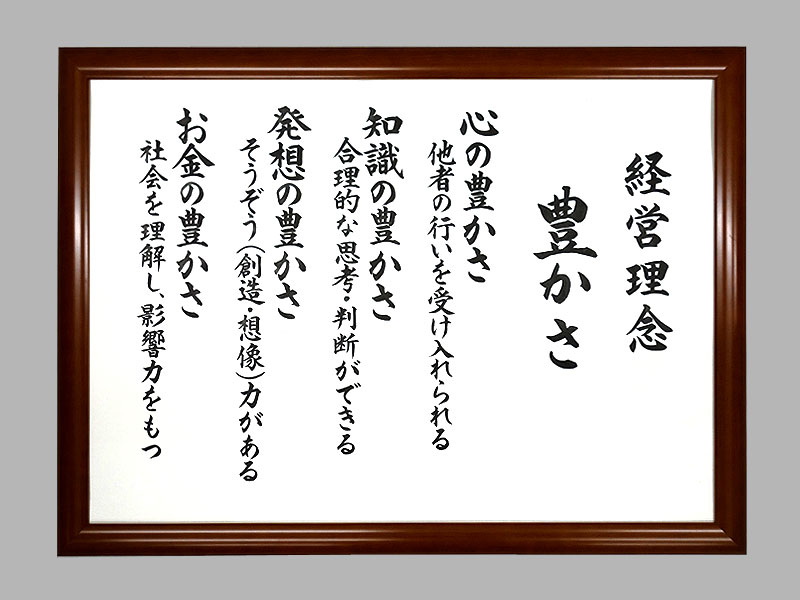 経営理念
豊かさ
心の豊かさ
他者の行いを受け入れられる
知識の豊かさ
合理的な思考・判断ができる
発想の豊かさ
そうぞう(創造・想像)力がある
お金の豊かさ
社会を理解し、影響力をもつ